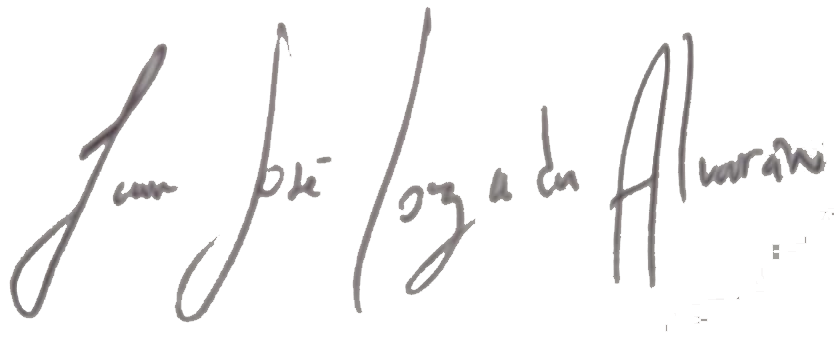 Juan José Lozada Alvarán